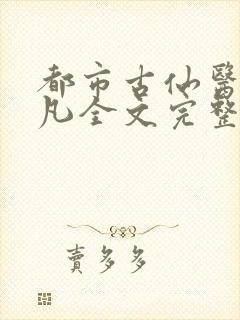 都市古仙醫
凡全文完整
賣多多